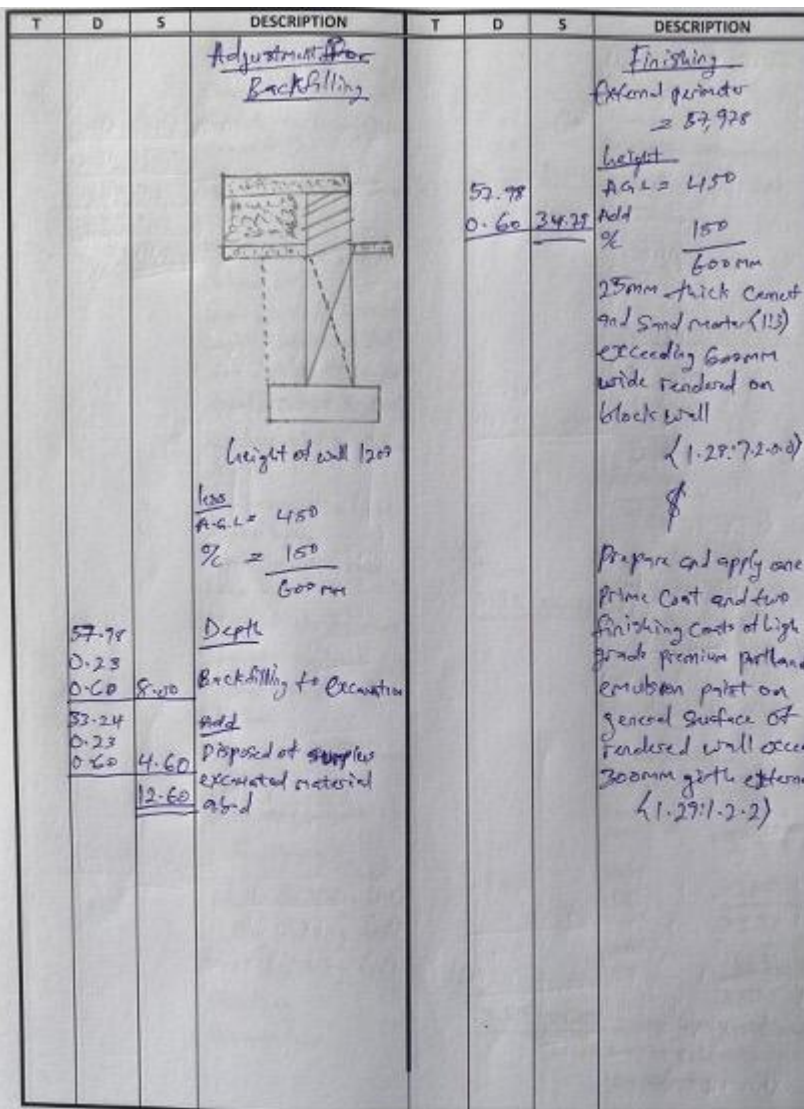 T D S DESCRIPTION
Adjustment for
Backfilling
height of wall 1209
less
A.G.L = 450
% = 150
600 mm
57.98 Depth
0.23
0.60 8.00 Backfilling to excavation
33.24 Add
0.23
0.60 4.60 Disposed of surplus
excavated material
12.60 a.b.d
T D S DESCRIPTION
Finishing
External perimeter
= 57,978
height
57.98 A.G.L = 450
0.60 34.79 Add
% 150
600 mm
25mm thick cement
and sand mortar (1:3)
exceeding 600mm
wide rendered on
block wall
(1.28:7.2.0.0)
&
Prepare and apply one
prime coat and two
finishing coats of high
grade premium portland
emulsion paint on
general surface of
rendered wall excee
300mm girth externa
(1.29:1.2.2)